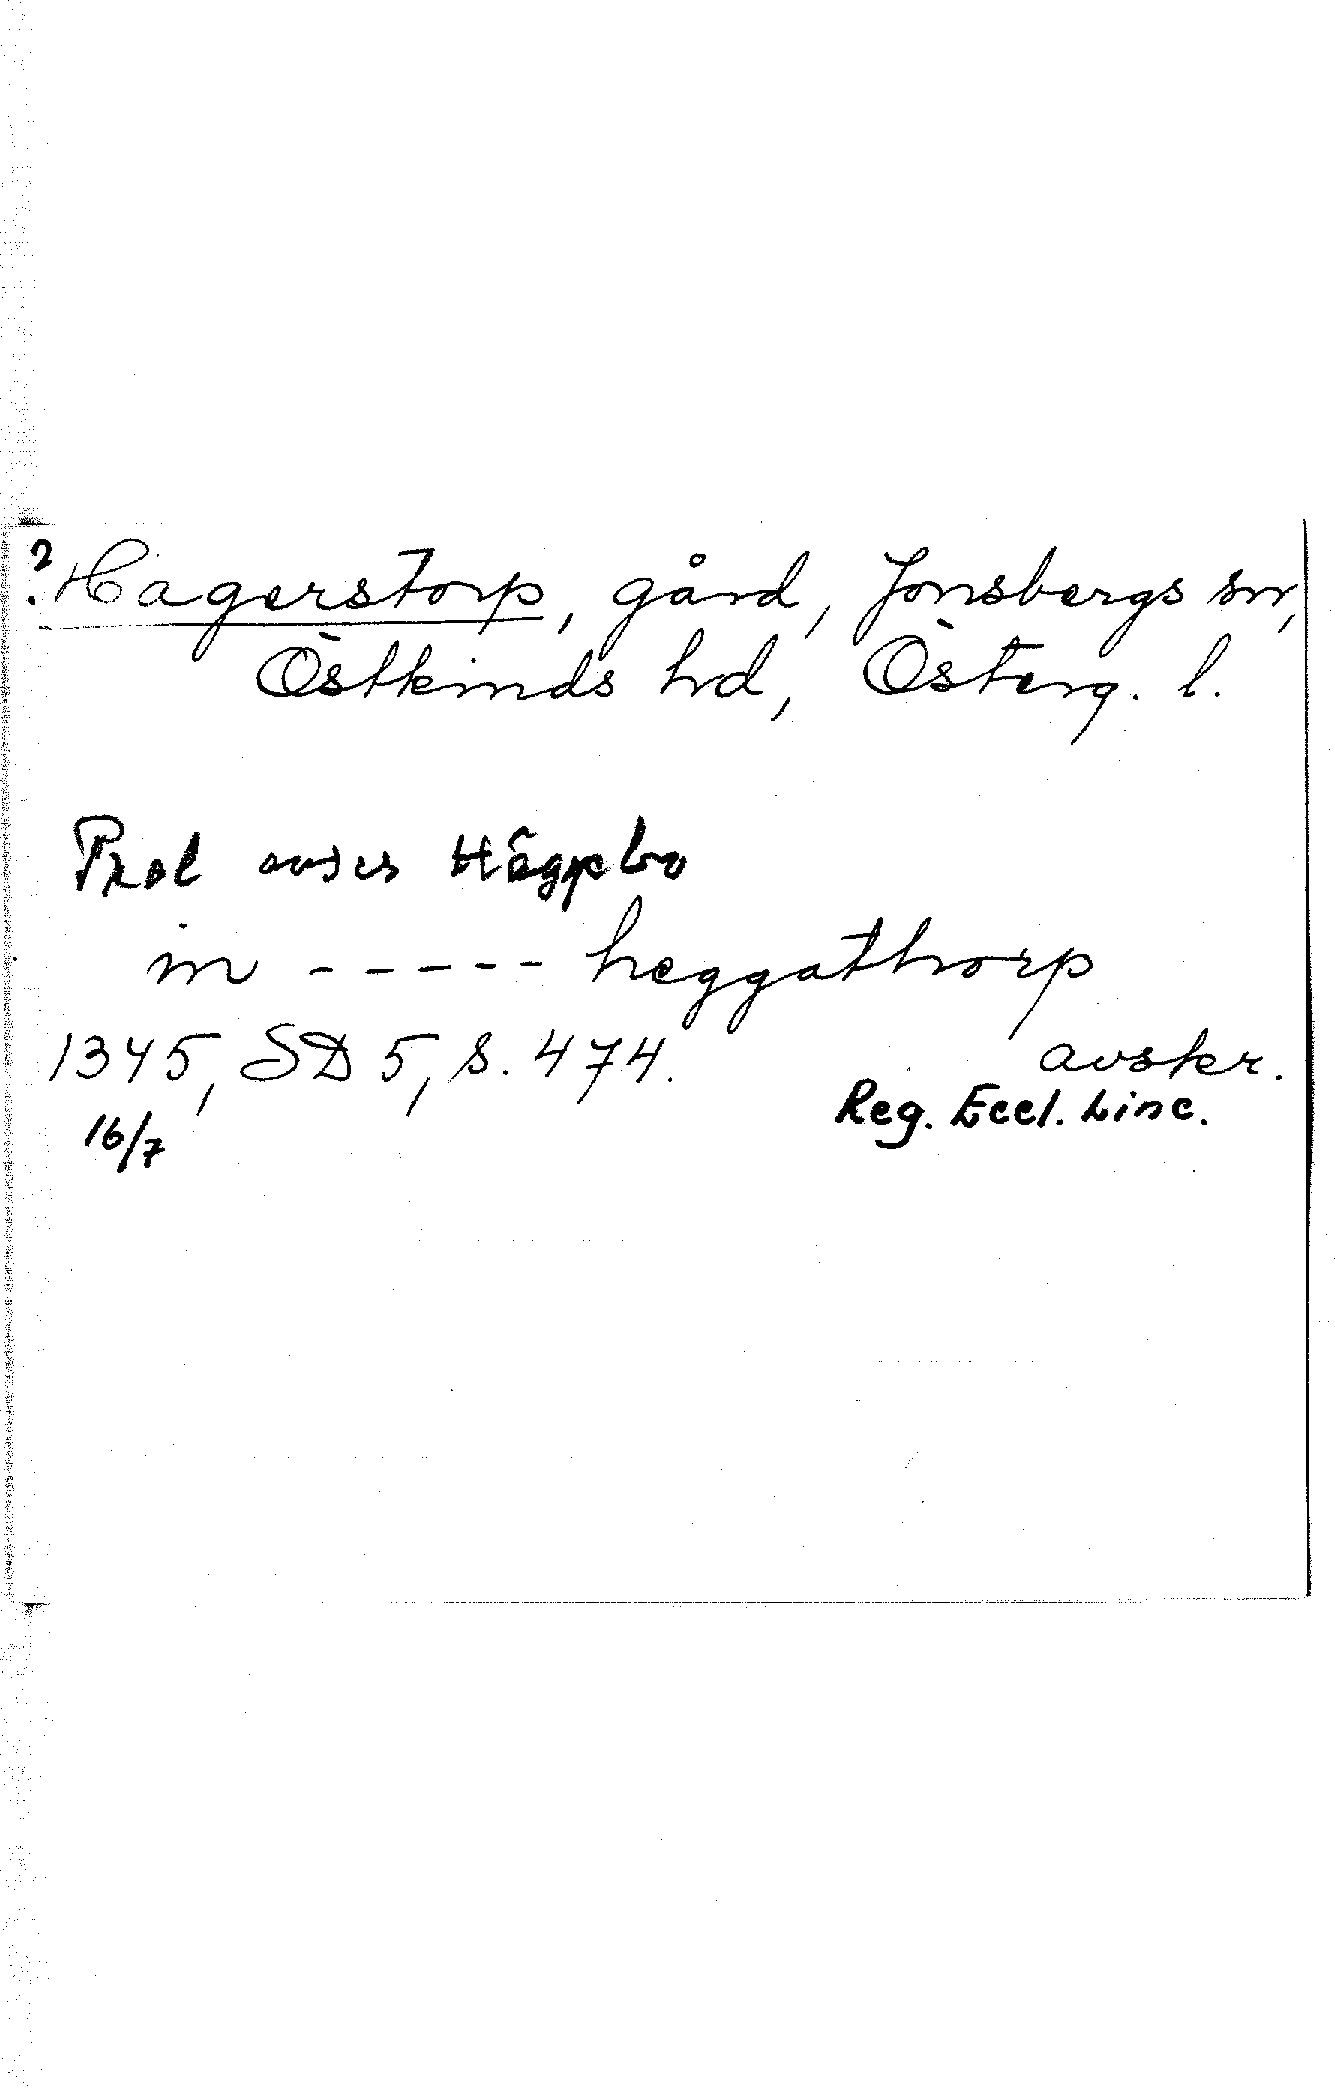 ? Hagerstorp, gård, Jonsbergs sn,
Östkinds hd, Österg. l.
Trol avses Häggebo
in ----- heggathorp
1345, SD 5, s. 474. avskr.
16/7 Reg. Eccl. Linc.